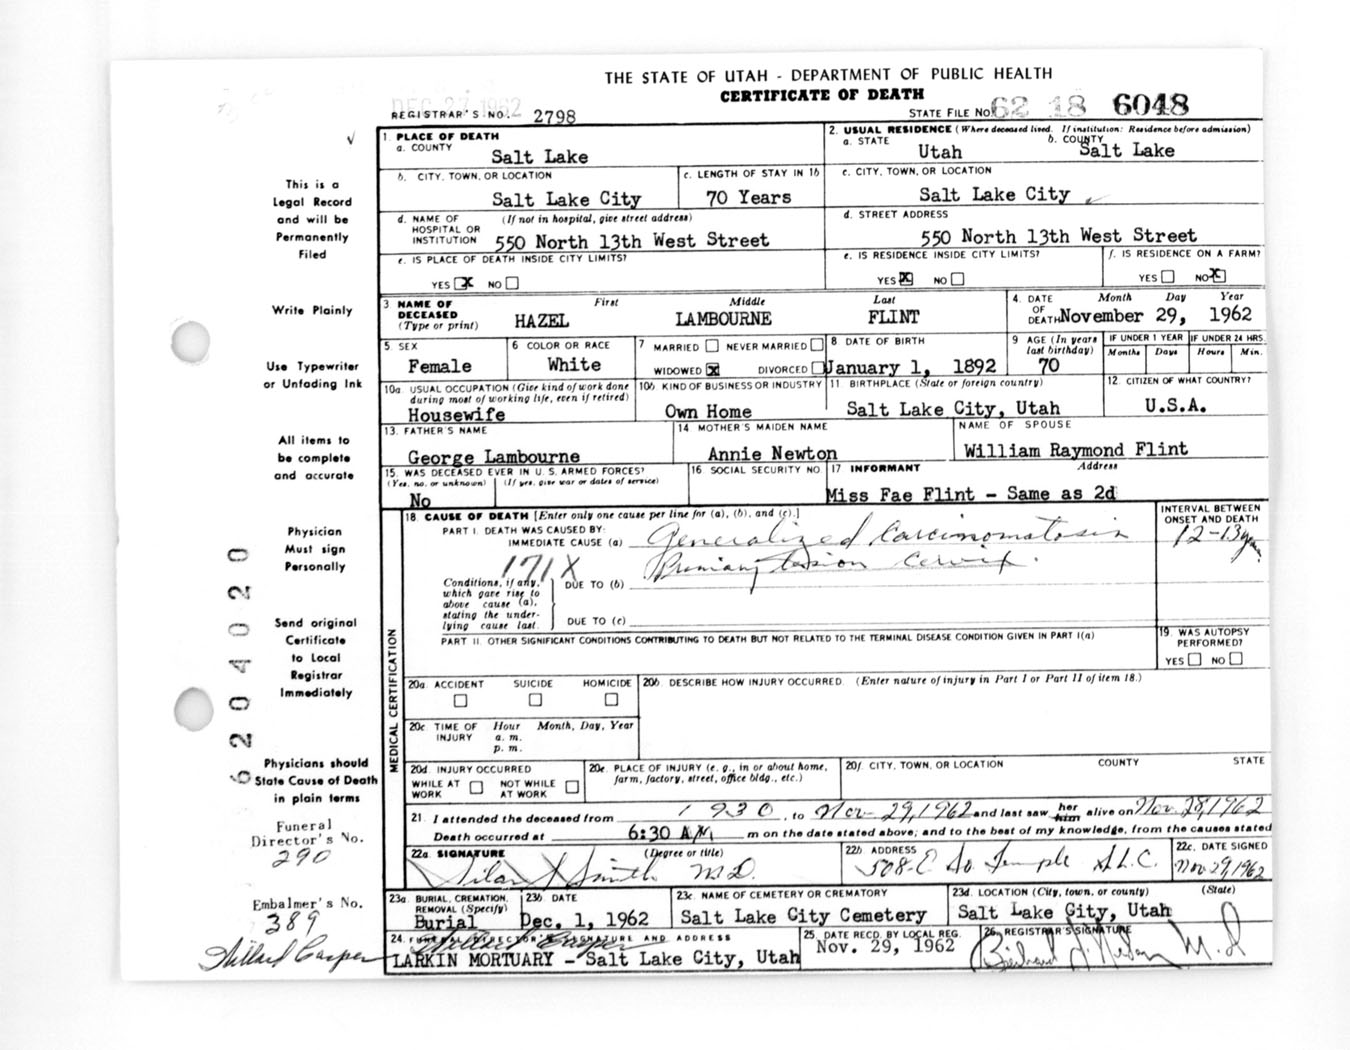 THE STATE OF UTAH - DEPARTMENT OF PUBLIC HEALTH
CERTIFICATE OF DEATH
DEC 27 1962
REGISTRAR'S NO. 2798
STATE FILE NO. 62 18 6048
1. PLACE OF DEATH
a. COUNTY
Salt Lake
2. USUAL RESIDENCE (Where deceased lived. If institution: Residence before admission)
a. STATE
Utah
b. COUNTY
Salt Lake
b. CITY, TOWN, OR LOCATION
Salt Lake City
c. LENGTH OF STAY IN 1b
70 Years
c. CITY, TOWN, OR LOCATION
Salt Lake City
d. NAME OF HOSPITAL OR INSTITUTION
(If not in hospital, give street address)
550 North 13th West Street
d. STREET ADDRESS
550 North 13th West Street
e. IS PLACE OF DEATH INSIDE CITY LIMITS?
YES X NO
e. IS RESIDENCE INSIDE CITY LIMITS?
YES X NO
f. IS RESIDENCE ON A FARM?
YES NO X
3. NAME OF DECEASED
(Type or print)
First Middle Last
HAZEL LAMBOURNE FLINT
4. DATE OF DEATH
Month Day Year
November 29, 1962
5. SEX
Female
6 COLOR OR RACE
White
7 MARRIED NEVER MARRIED
WIDOWED X DIVORCED
8 DATE OF BIRTH
January 1, 1892
9 AGE (In years last birthday)
70
IF UNDER 1 YEAR
Months Days
IF UNDER 24 HRS.
Hours Min.
10a. USUAL OCCUPATION (Give kind of work done during most of working life, even if retired)
Housewife
10b. KIND OF BUSINESS OR INDUSTRY
Own Home
11 BIRTHPLACE (State or foreign country)
Salt Lake City, Utah
12. CITIZEN OF WHAT COUNTRY?
U.S.A.
13. FATHER'S NAME
George Lambourne
14 MOTHER'S MAIDEN NAME
Annie Newton
NAME OF SPOUSE
William Raymond Flint
15. WAS DECEASED EVER IN U. S. ARMED FORCES?
(Yes, no, or unknown) (If yes, give war or dates of service)
No
16 SOCIAL SECURITY NO.
17 INFORMANT Address
Miss Fae Flint - Same as 2d
MEDICAL CERTIFICATION
18. CAUSE OF DEATH [Enter only one cause per line for (a), (b), and (c).]
PART I. DEATH WAS CAUSED BY:
IMMEDIATE CAUSE (a) Generalized Carcinomatosis
171X
Primary lesion Cervix.
Conditions, if any, which gave rise to above cause (a), stating the underlying cause last.
DUE TO (b)
DUE TO (c)
INTERVAL BETWEEN ONSET AND DEATH
12-13 years
PART II. OTHER SIGNIFICANT CONDITIONS CONTRIBUTING TO DEATH BUT NOT RELATED TO THE TERMINAL DISEASE CONDITION GIVEN IN PART I(a)
19. WAS AUTOPSY PERFORMED?
YES NO
20a. ACCIDENT SUICIDE HOMICIDE
20b. DESCRIBE HOW INJURY OCCURRED. (Enter nature of injury in Part I or Part II of item 18.)
20c. TIME OF INJURY
Hour Month, Day, Year
a. m.
p. m.
20d. INJURY OCCURRED
WHILE AT WORK NOT WHILE AT WORK
20e. PLACE OF INJURY (e. g., in or about home, farm, factory, street, office bldg., etc.)
20f. CITY, TOWN, OR LOCATION COUNTY STATE
21. I attended the deceased from 1930, to Nov 29, 1962 and last saw her him alive on Nov. 28, 1962
Death occurred at 6:30 A.M. m on the date stated above; and to the best of my knowledge, from the causes stated
22a. SIGNATURE (Degree or title)
Smith M.D.
22b. ADDRESS
508-E So Temple S.L.C.
22c. DATE SIGNED
Nov 29, 1962
23a. BURIAL, CREMATION, REMOVAL (Specify)
Burial
23b DATE
Dec. 1, 1962
23c. NAME OF CEMETERY OR CREMATORY
Salt Lake City Cemetery
23d. LOCATION (City, town, or county) (State)
Salt Lake City, Utah
24. FUNERAL DIRECTOR'S SIGNATURE AND ADDRESS
Willard Casper
LARKIN MORTUARY - Salt Lake City, Utah
25. DATE RECD. BY LOCAL REG.
Nov. 29, 1962
26. REGISTRAR'S SIGNATURE
M.D
This is a
Legal Record
and will be
Permanently
Filed
Write Plainly
Use Typewriter
or Unfading Ink
All items to
be complete
and accurate
Physician
Must sign
Personally
Send original
Certificate
to Local
Registrar
Immediately
Physicians should
State Cause of Death
in plain terms
Funeral
Director's No.
290
Embalmer's No.
389
Willard Casper
6204020